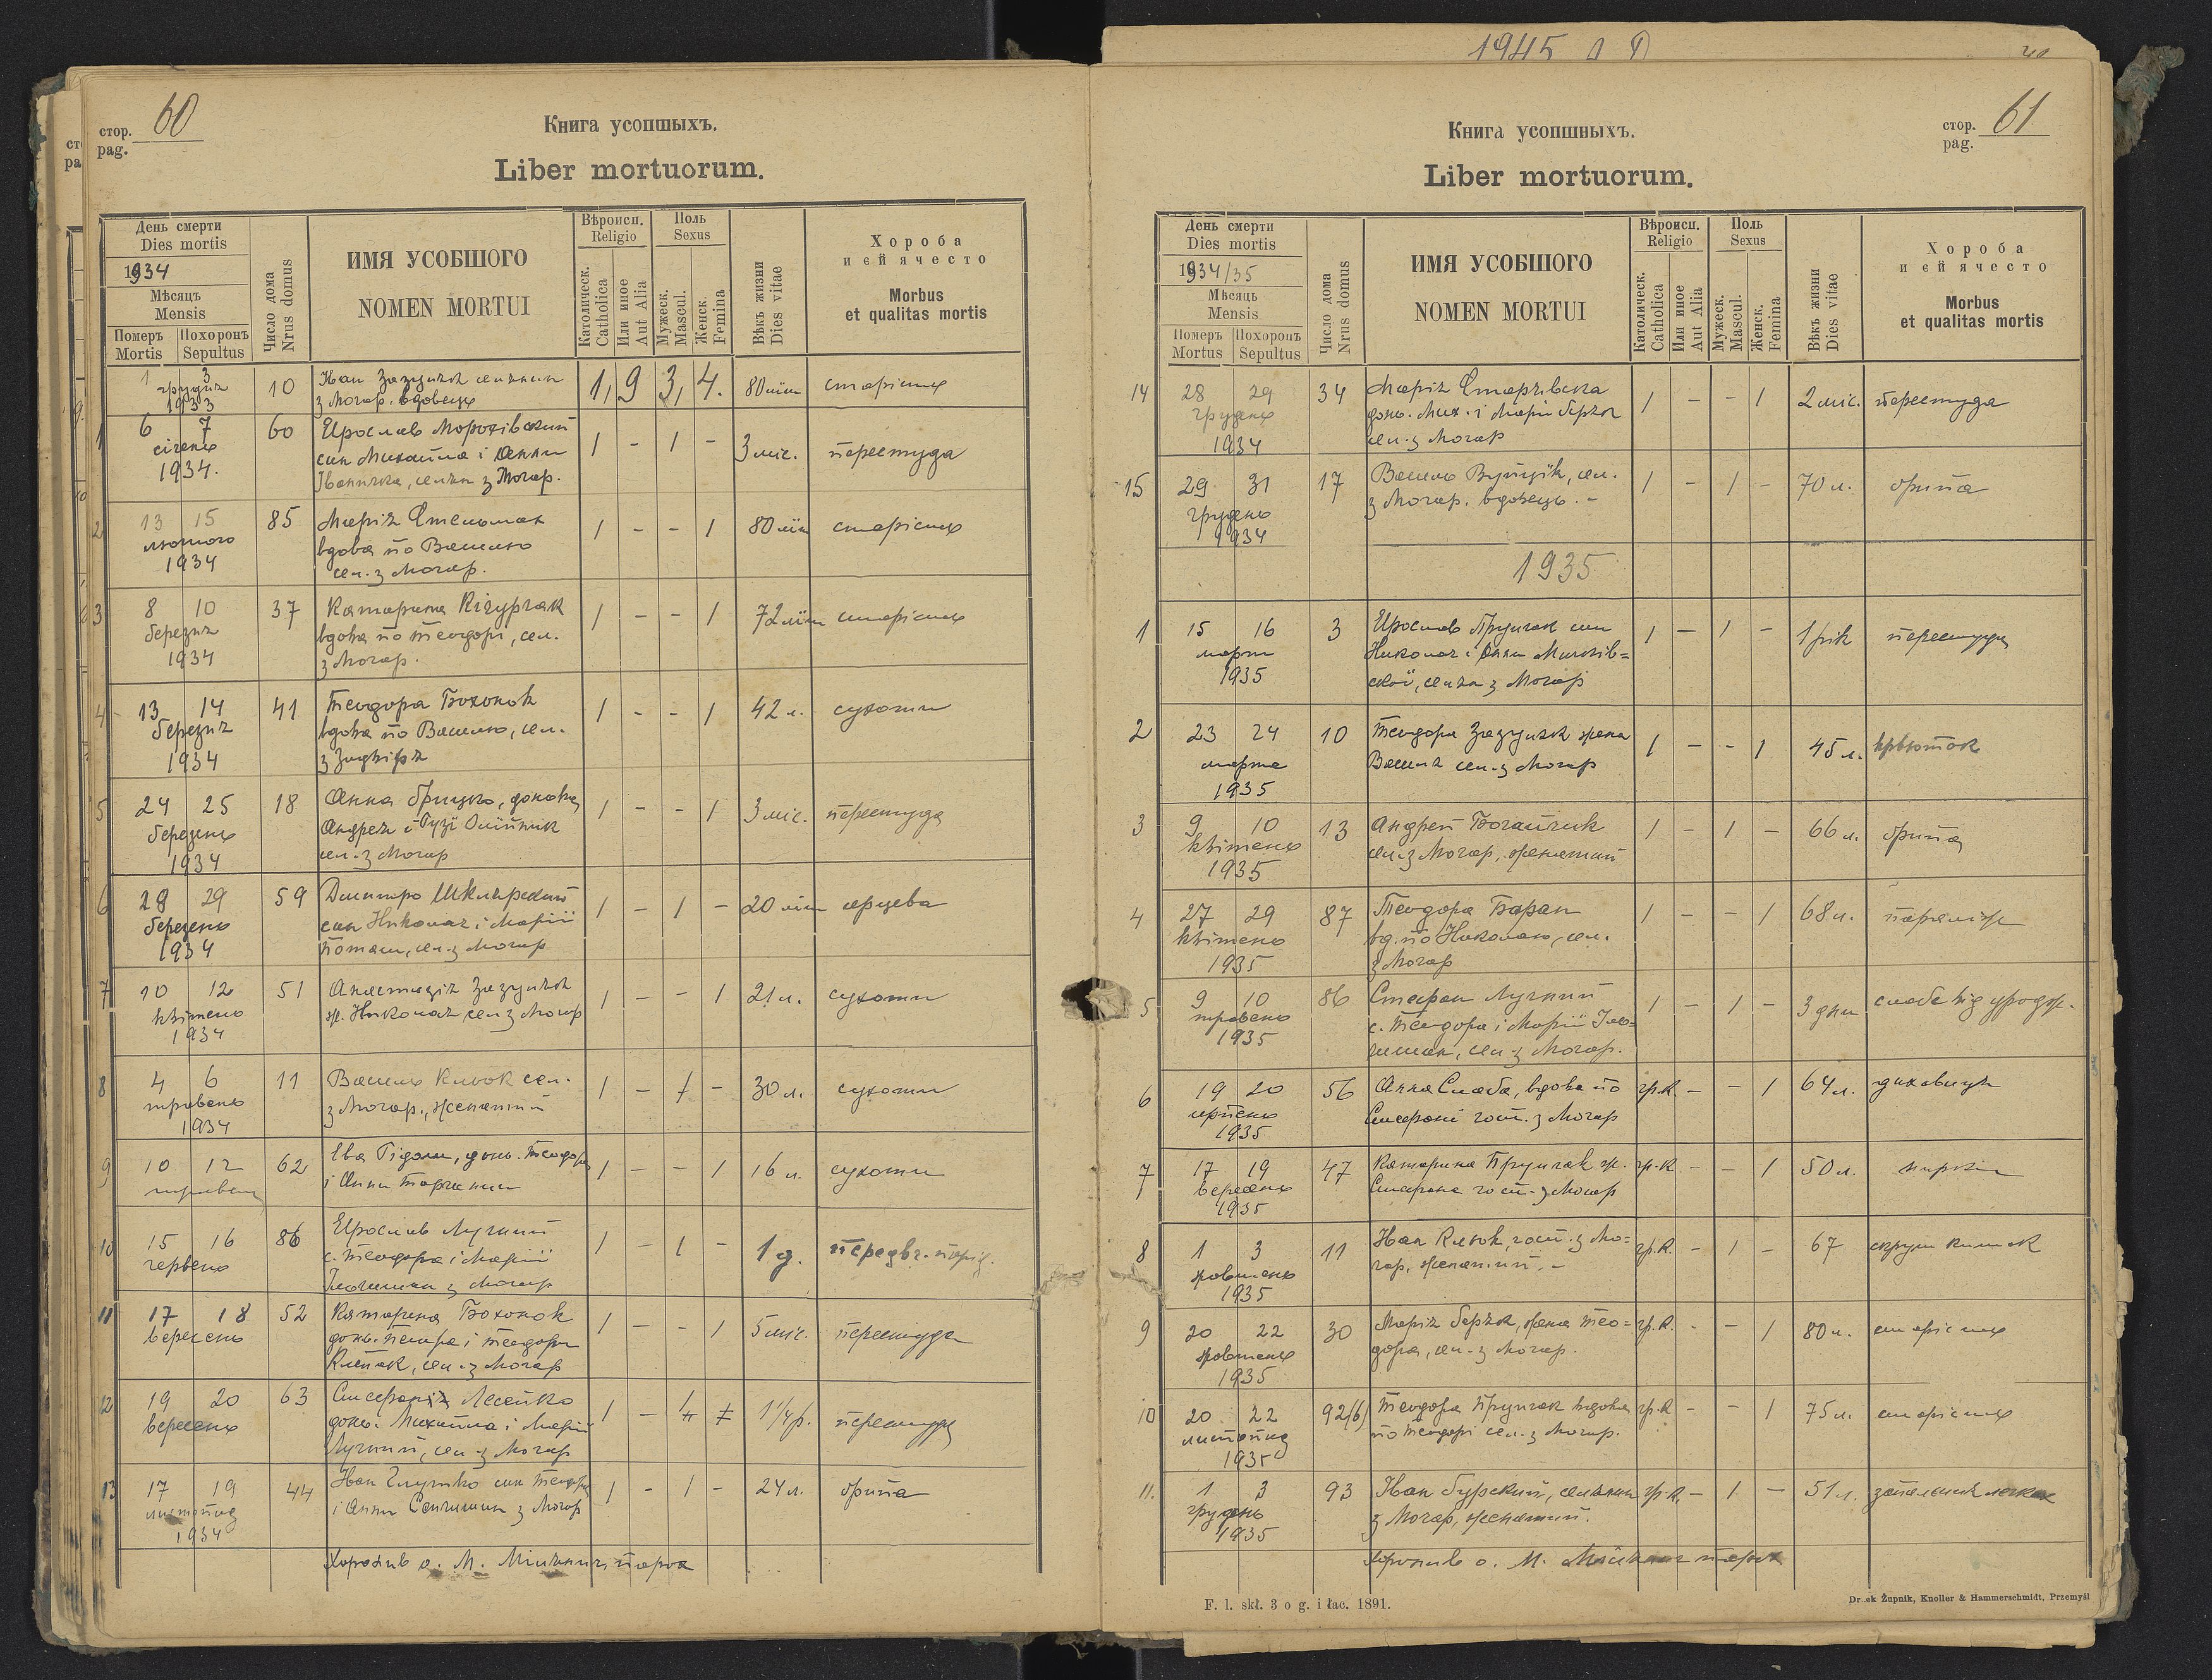 1945
стор. 60
pag.
Книга усопшыхъ.
Liber mortuorum.
День смерти
Dies mortis
1934
Мѣсяцъ
Mensis
Померъ Похоронъ
Mortis Sepultus
Число дома
Nrus domus
ИМЯ УСОБШОГО
NOMEN MORTUI
Вѣроисп.
Religio
Католическ.
Catholica
Или иное
Aut Alia
Поль
Sexus
Мужеск.
Mascul.
Женск.
Femina
Вѣкъ жизни
Dies vitae
Хороба
и єй ячесто
Morbus
et qualitas mortis
1 3 10 Іван Зазуляк селянин 1, 9 3, 4. 80 літ старість
грудня з Могар. вдовець
1933
1 6 7 60 Ярослав Морохівський 1 - 1 - 3 міс. перестуда
січень син Михайла і Анни
1934. селян з Могар.
2 13 15 85 Марія Стельмах 1 - - 1 80 літ старість
лютого вдова по Василю
1934 сел. з Могар.
3 8 10 37 Катарина Кічурчак 1 - - 1 72 літ старість
березня вдова по Теодорі, сел.
1934 з Могар.
4 13 14 41 Теодора Бохонок 1 - - 1 42 л. сухоти
березня вдова по Василю, сел.
1934 з
5 24 25 18 Анна Грицко, донька 1 - - 1 3 міс. перестуда
березень Андрея і Рузі Олійник
1934 сел. з Могар
6 28 29 59 Дмитро 1 - 1 - 20 літ серцева
березень син Николая і Марії
1934 сел. з Могар
7 10 12 51 Анастазія Зазуляк 1 - - 1 21 л. сухоти
квітень ж. Николая сел. з Могар
1934
8 4 6 11 Василь Клюк сел. 1 - 1 - 30 л. сухоти
травень з Могар., женатий
1934
9 10 12 62 Ева донь. Теодора 1 - - 1 16 л. сухоти
травень і Анни
10 15 16 86 Ярослав Лучний 1 - 1 - 1 д. передвч. порід.
червень с. Теодора і Марії
з Могар
11 17 18 52 Катарина Бохонок 1 - - 1 5 міс. перестуда
вересень донь. Петра і Теодори
сел. з Могар
12 19 20 63 Стефанія Лесейко 1 - 1 1 1/4 р. перестуда
вересень донь. Михайла і Марії
Лучний, сел. з Могар
13 17 19 44 Іван син Теодора 1 - 1 - 24 л. гріпа
листопад і Анни з Могар
1934
Хоронив о. М. парох
стор. 61
pag.
Книга усопшныхъ.
Liber mortuorum.
День смерти
Dies mortis
1934/35
Мѣсяцъ
Mensis
Померъ Похоронъ
Mortus Sepultus
Число дома
Nrus domus
ИМЯ УСОБШОГО
NOMEN MORTUI
Вѣроисп.
Religio
Католическ.
Catholica
Или иное
Aut Alia
Поль
Sexus
Мужеск.
Mascul.
Женск.
Femina
Вѣкъ жизни
Dies vitae
Хороба
и єй ячесто
Morbus
et qualitas mortis
14 28 29 34 Марія 1 - - 1 2 міс. перестуда
грудень донь. Мих. і Марії Гержок
1934 сел. з Могар
15 29 31 17 Василь сел. 1 - 1 - 70 л. гріпа
грудень з Могар. вдовець. -
1934
1935
1 15 16 3 Ярослав Прунчак син 1 - 1 - 1 рік перестуда
марта Николая і Анни
1935 селян з Могар
2 23 24 10 Теодора Зазуляк жена 1 - - 1 45 л. крвоток
марта Василя сел. з Могар
1935
3 9 10 13 Андрей Богайчик 1 - 1 - 66 л. гріпа
квітень сел. з Могар, женатий
1935
4 27 29 87 Теодора Баран 1 - - 1 68 л. параліж
квітень вд. по Николаю, сел.
1935 з Могар
5 9 10 86 Стефан Лучний 1 - 1 - 3 дни слабе від уродж.
травень с. Теодора і Марії
1935 сел. з Могар.
6 19 20 56 Анна Слаба, вдова по гр.к. - - 1 64 л.
серпень Стефані госп. з Могар
1935
7 17 19 47 Катарина Прунчак ж. гр.к - - 1 50 л. нирки
вересень Стефана госп. з Могар
1935
8 1 3 11 Іван Клюк, госп. з Мо= гр.к. - 1 - 67 скрут кишок
жовтень гар, женатий. -
1935
9 20 22 30 Марія Гержок, жена Тео= гр.к. - - 1 80 л. старість
жовтень дора, сел. з Могар.
1935
10 20 22 92(6) Теодора Прунчак вдова гр.к - - 1 75 л. старість
листопад по Теодорі сел. з Могар.
1935
11. 1 3 93 Іван Гурский, селянин гр.к. - 1 - 51 л. запаленнє легких
грудень з Могар, женатий.
1935
Хоронив о. М. парох
F. l. skł. 3 o g. i łac. 1891.
Druk Żupnik, Knoller & Hammerschmidt, Przemyśl